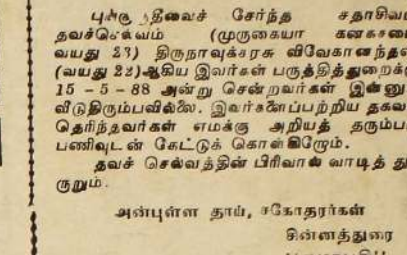 சேர்ந்த சதாசிவம்
தவச்செல்வம் (முருகையா
வயது 23) திருநாவுக்கரசு விவேகானந்தன்
(வயது 22)ஆகிய இவர்கள் பருத்தித்துறைக்கு
15 - 5 - 88 அன்று சென்றவர்கள்
வீடுதிரும்பவில்லை. இவர்களைப்பற்றிய தகவ
தெரிந்தவர்கள் எமக்கு அறியத் தரும்ப
பணிவுடன் கேட்டுக் கொள்கிறோம்.
தவச் செல்வத்தின் பிரிவால் வாடித் து
ருறும்.
அன்புள்ள தாய், சகோதரர்கள்
சின்னத்துரை